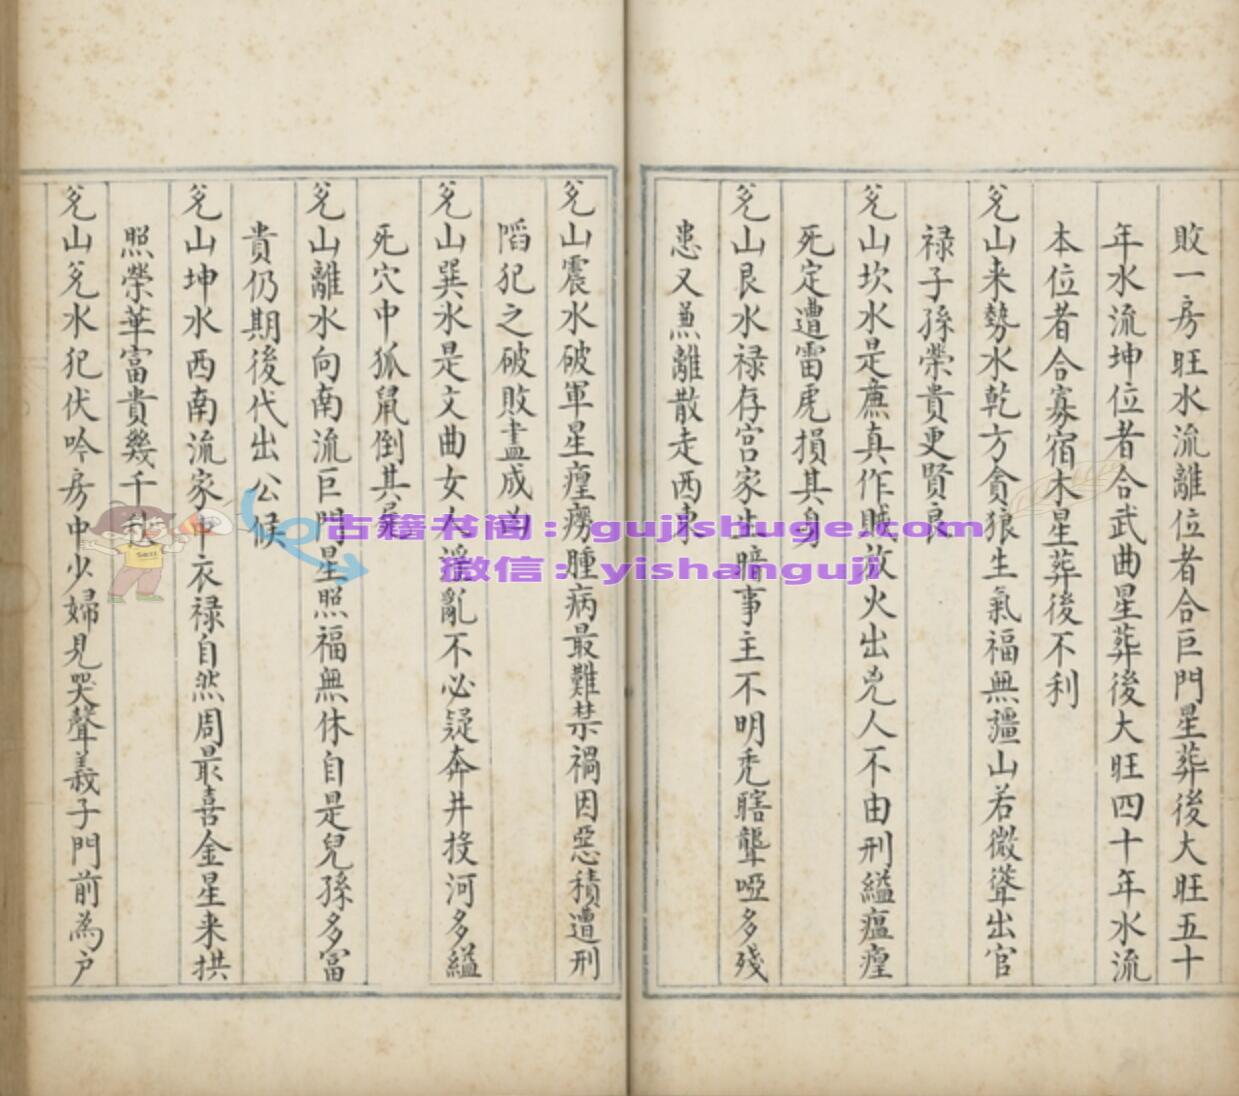 敗一房旺水流離位者合巨門星葬後大旺五十
年水流坤位者合武曲星葬後大旺四十年水流
本位者合寡宿木星葬後不利
兊山来勢水乾方貪狼生氣福無疆山若微聳出官
禄子孫榮貴更賢良
兊山坎水是亷真作賊放火出兇人不由刑縊瘟瘽
死定遭雷虎損其身
兊山艮水禄存宫家生暗事主不明禿瞎聾啞多殘
患又兼離散走西東
兊山震水破軍星瘽癆腫病最難禁禍因惡積遭刑
陷犯之破敗盡成凶
兊山巽水是文曲女人淫亂不必疑奔井投河多縊
死穴中狐鼠倒其屍
兊山離水向南流巨門星照福無休自是兒孫多富
貴仍期後代出公候
兊山坤水西南流家中衣禄自然周最喜金星来拱
照榮華富貴幾千秋
兊山兊水犯伏吟房中少婦見哭聲義子門前為户
古籍书阁：gujishuge.com
微信：yishanguji